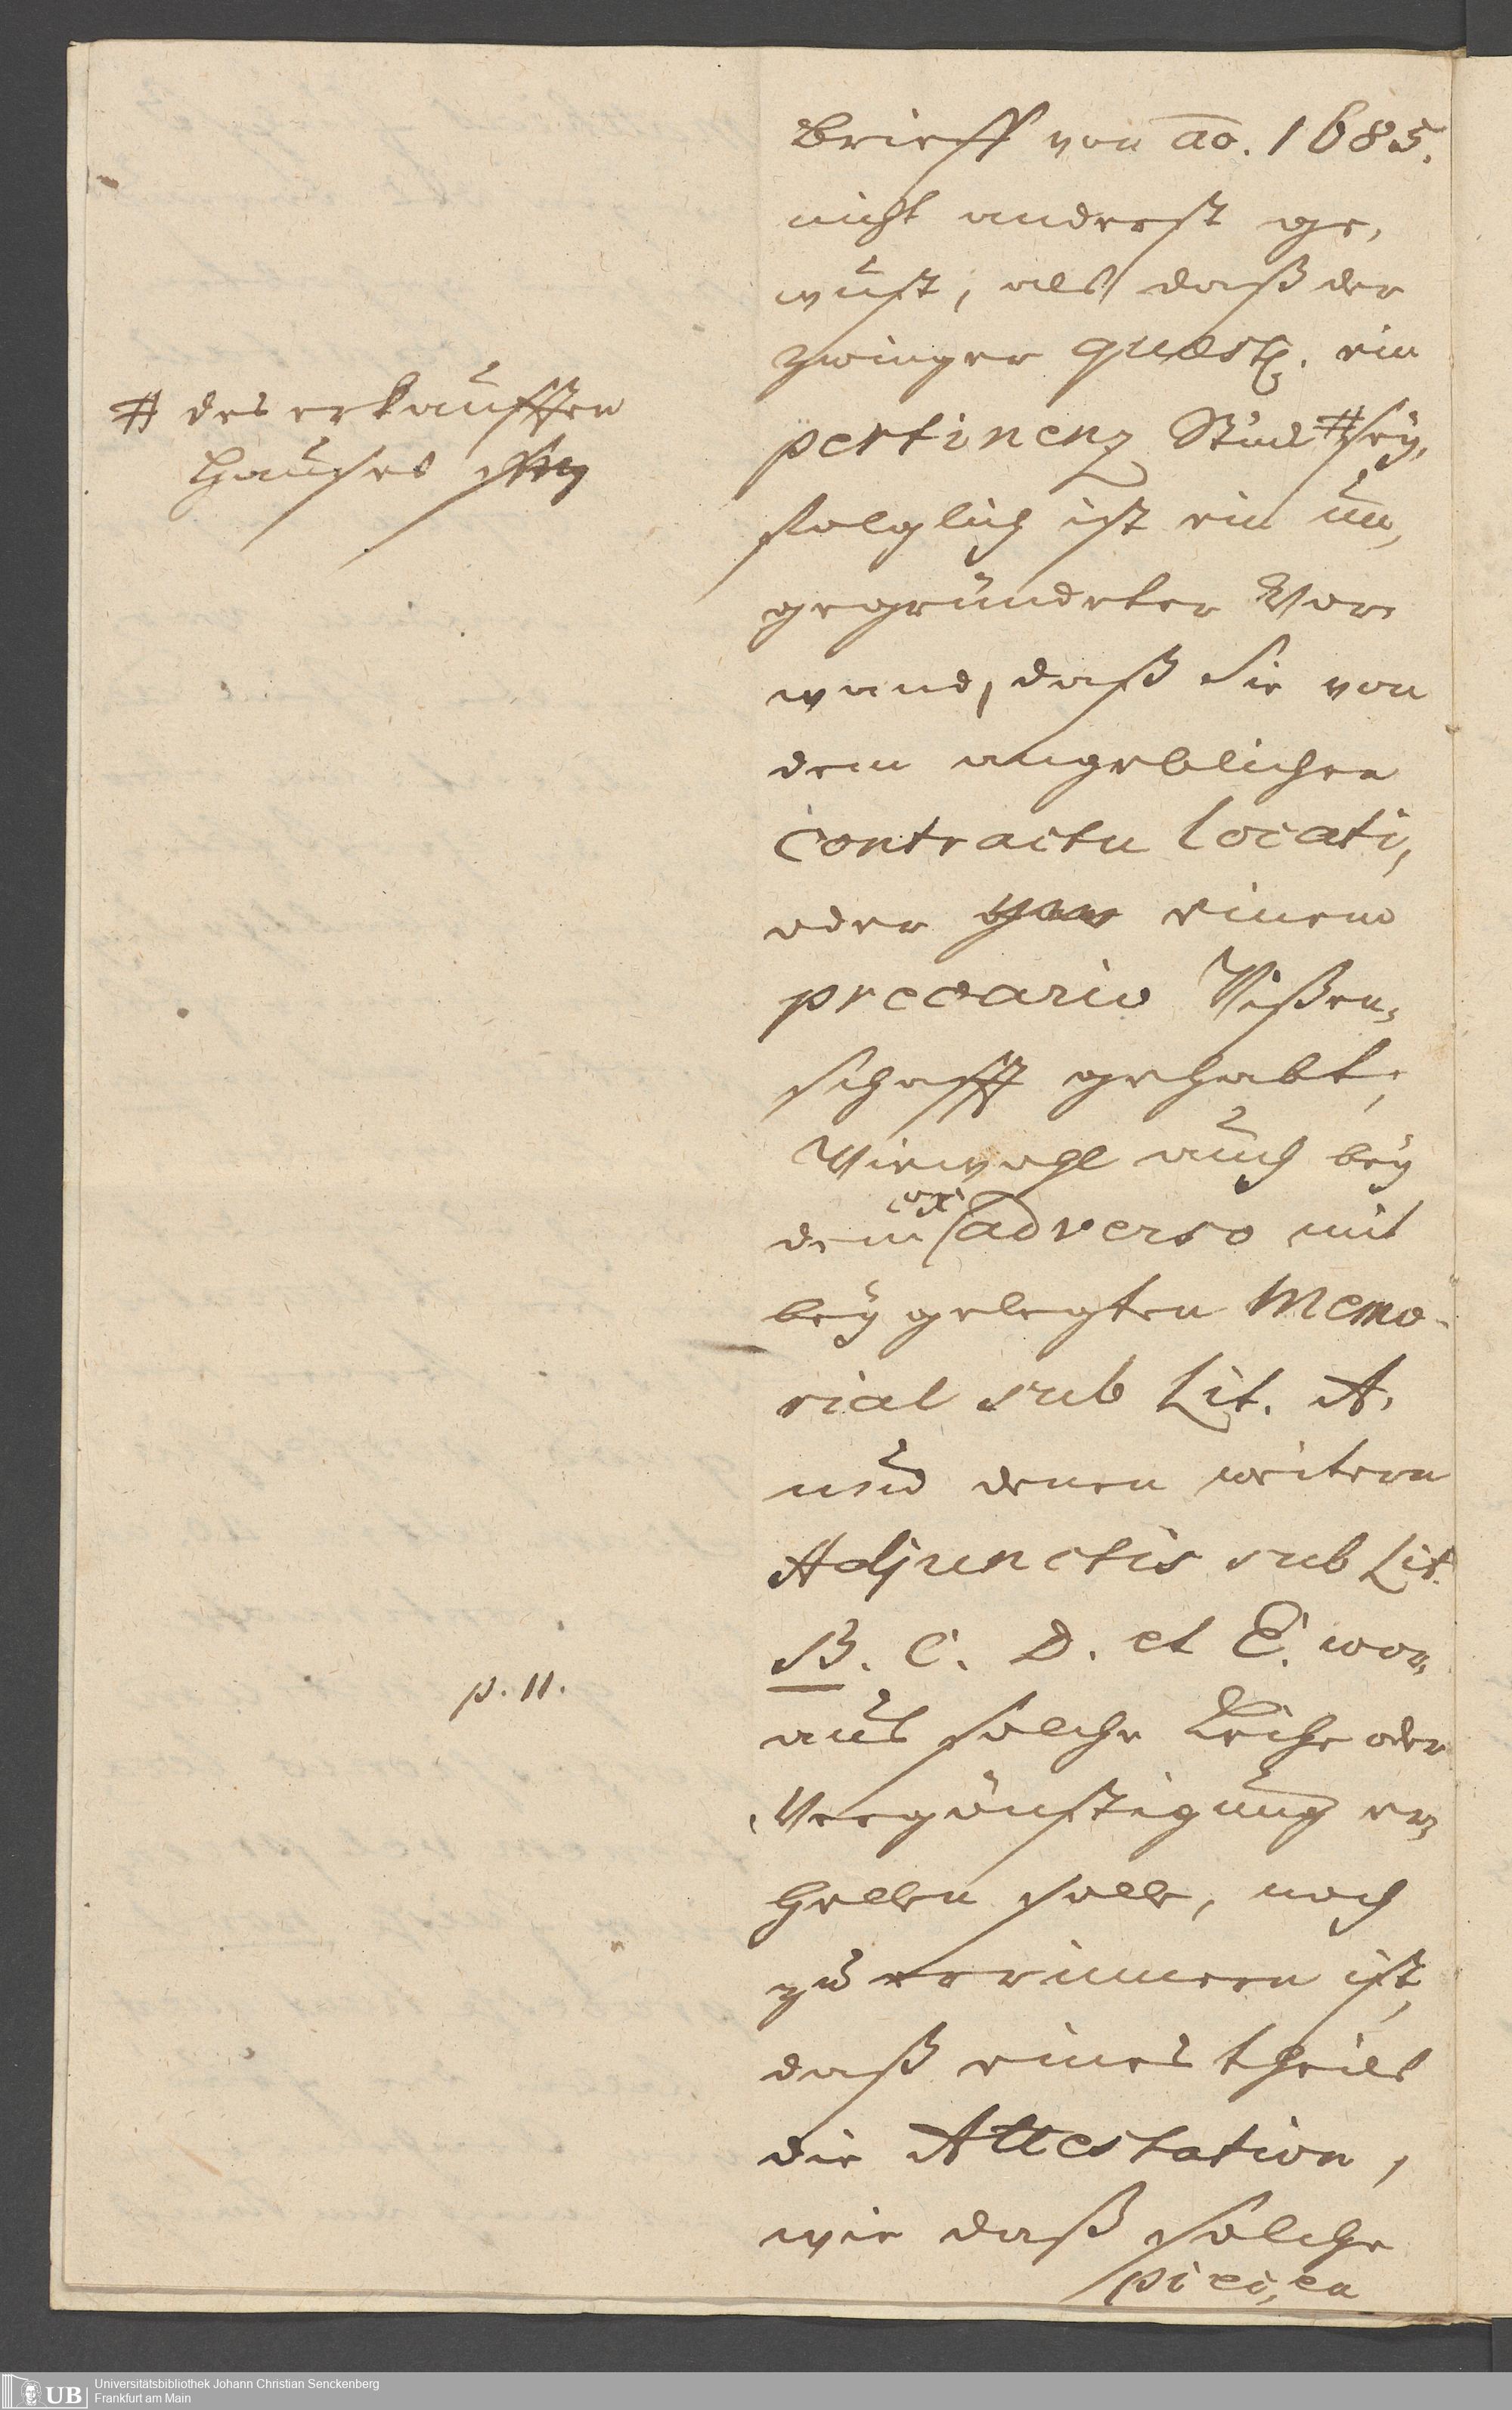 Brieff von ao. 1685.
nicht anderst ge,
wust, als daß der
zwinger quæst. ein
# des erkaufften
Hauses
pertinenz Stück # sey,
folglich ist ein un,
gegründeter Vor,
wand, daß Sie von
dem angeblichen
Contractu locati,
oder einem
precario Wißen,
schafft gehabt,
Wiewohl auch bey
dem ex adverso mit
bey gelegten Memo,
rial sub Lit. A.
und denen weitern
Adjunctis sub Lit.
B. C. D. et E. wor,
p. 11.
aus solche Leihe oder
Vergünstigung er,
hellen solle, noch
zu errinnern ist,
daß eines theils
die Attestation,
wie daß solche
piecen
UB Universitätsbibliothek Johann Christian Senckenberg
Frankfurt am Main